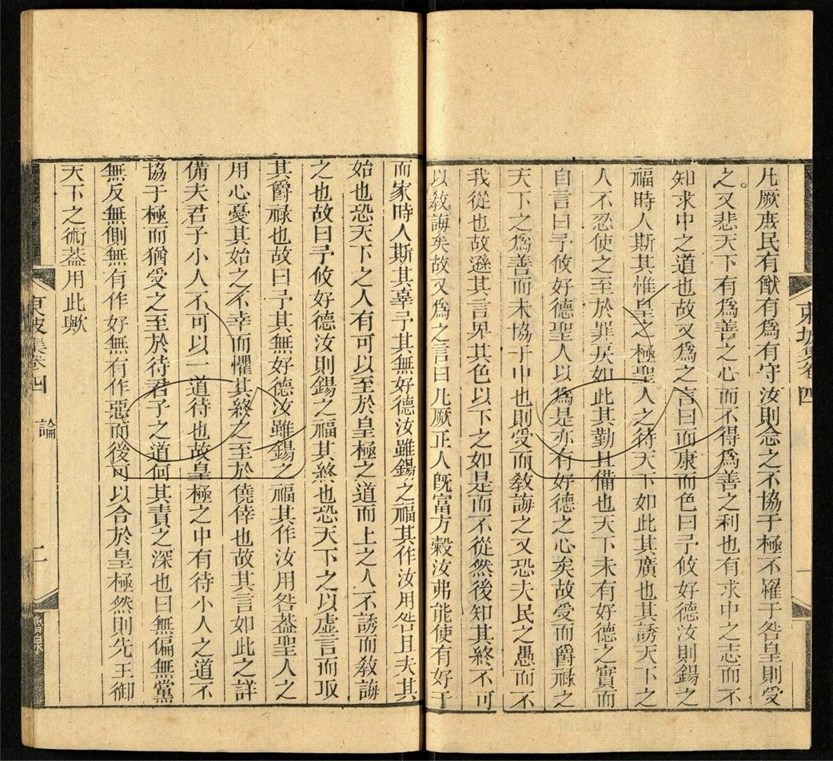 凡厥庶民有猷有爲有守汝則念之不協于極不罹于咎皇則受
之又悲天下有爲善之心而不得爲善之利也有求中之志而不
知求中之道也故又爲之言曰而康而色曰予攸好德汝則錫之
福時人斯其惟皇之極聖人之待天下如此其廣也其誘天下之
人不忍使之至於罪戾如此其勤且備也天下未有好德之實而
自言曰予攸好德聖人以爲是亦有好德之心矣故受而爵祿之
天下之爲善而未協于中也則受而敎誨之又恐夫民之愚而不
我從也故遜其言卑其色以下之如是而不從然後知其終不可
以敎誨矣故又爲之言曰凡厥正人旣富方榖汝弗能使有好于
而家時人斯其辜予其無好德汝雖錫之福其作汝用咎且夫其
始也恐天下之人有可以至於皇極之道而上之人不誘而敎誨
之也故曰予攸好德汝則錫之福其終也恐天下之以虛言而取
其爵祿也故曰予其無好德汝雖錫之福其作汝用咎葢聖人之
用心憂其始之不幸而懼其終之至於僥倖也故其言如此之詳
備夫君子小人不可以一道待也故皇極之中有待小人之道不
協于極而猶受之至於待君子之道何其責之深也曰無偏無黨
無反無側無有作好無有作惡而後可以合於皇極然則先王御
天下之術葢用此歟
東坡集卷四
論
二